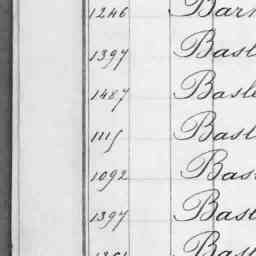 1246 Barn
1397 Basl
1487 Basle
1115 Basl
1092 Bas
1397 Basl
Basl